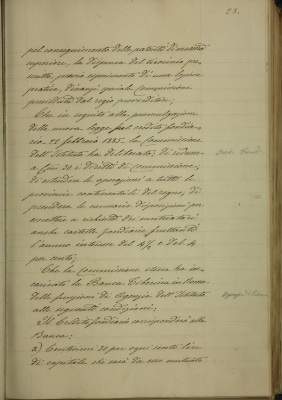 28.
pel conseguimento della patente di maestro
superiore, la dispensa del tirocinio pre-
scritto, previo esperimento di una lezione
pratica, dinanzi speciale Commissione
presieduta dal regio provveditore;
Che in seguito alla promulgazione
della nuova legge sul credito fondia-
rio 22 febbraio 1885, la Commissione
dell'Istituto ha deliberato: di ridurre
a Cmi 20 i diritti di Commissione,
di estendere le operazioni a tutte le
provincie continentali del regno; di
prendere le necessarie disposizioni per
emettere a richiesta dei mutuatari
anche cartelle fondiarie fruttanti
l'annuo interesse del 4½ e del 4
per cento;
Che la Commissione stessa ha in-
caricata la Banca Tiberina in Roma
delle funzioni di Agenzia dell'Istituto
alle seguenti condizioni;
Il Credito fondiario corrisponderà alla
Banca:
a) Centesimi 20 per ogni cento lire
di capitale che sarà da esso mutuato